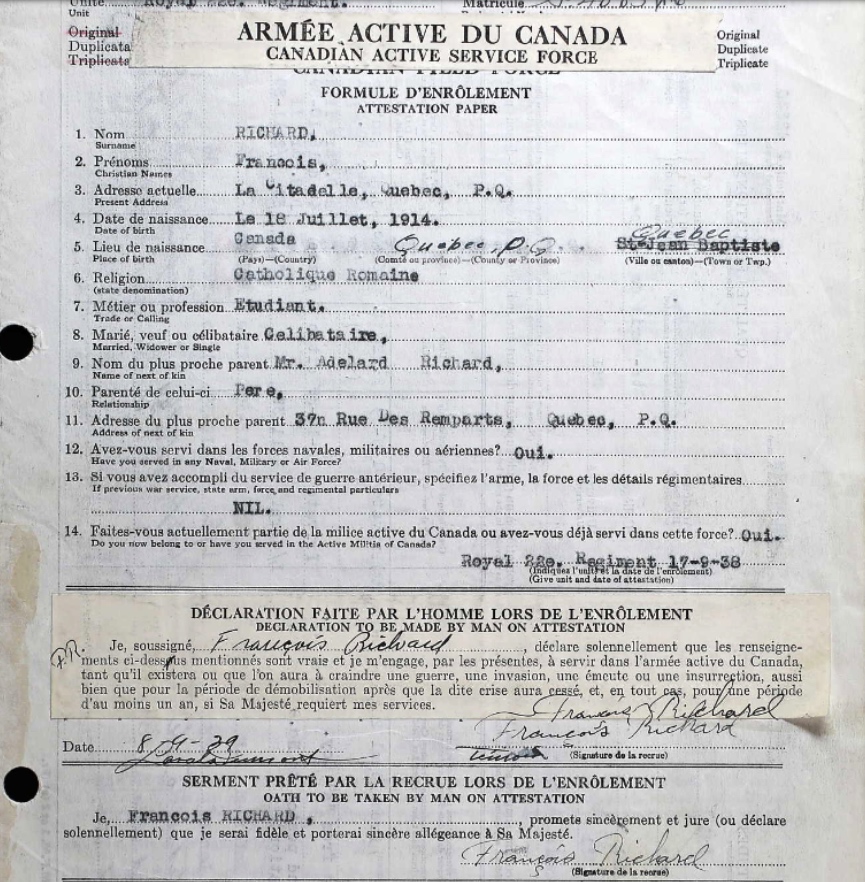 Unité Royal 22e. Regiment. Matricule
Unit
Original ARMÉE ACTIVE DU CANADA Original
Duplicata CANADIAN ACTIVE SERVICE FORCE Duplicate
Triplicata CANADIAN FIELD FORCE Triplicate
FORMULE D'ENRÔLEMENT
ATTESTATION PAPER
1. Nom RICHARD,
Surname
2. Prénoms Francois,
Christian Names
3. Adresse actuelle La Citadelle, Quebec, P.Q.
Present Address
4. Date de naissance Le 18 Juillet, 1914.
Date of birth
Quebec
5. Lieu de naissance Canada Quebec, P.Q. St-Jean Baptiste
Place of birth (Pays)—(Country) (Comté ou province)—(County or Province) (Ville ou canton)—(Town or Twp.)
6. Religion Catholique Romaine
(state denomination)
7. Métier ou profession Etudiant.
Trade or Calling
8. Marié, veuf ou célibataire Celibataire,
Married, Widower or Single
9. Nom du plus proche parent Mr. Adelard Richard,
Name of next of kin
10. Parenté de celui-ci Pere,
Relationship
11. Adresse du plus proche parent 37n Rue Des Remparts, Quebec, P.Q.
Address of next of kin
12. Avez-vous servi dans les forces navales, militaires ou aériennes? Oui.
Have you served in any Naval, Military or Air Force?
13. Si vous avez accompli du service de guerre antérieur, spécifiez l'arme, la force et les détails régimentaires
If previous war service, state arm, force, and regimental particulars
NIL.
14. Faites-vous actuellement partie de la milice active du Canada ou avez-vous déjà servi dans cette force? Oui.
Do you now belong to or have you served in the Active Militia of Canada?
Royal 22e. Regiment 17-9-38
(Indiquez l'unité et la date de l'enrôlement)
(Give unit and date of attestation)
DÉCLARATION FAITE PAR L'HOMME LORS DE L'ENRÔLEMENT
DECLARATION TO BE MADE BY MAN ON ATTESTATION
F.R. Je, soussigné, François Richard, déclare solennellement que les renseigne-
ments ci-dessus mentionnés sont vrais et je m'engage, par les présentes, à servir dans l'armée active du Canada,
tant qu'il existera ou que l'on aura à craindre une guerre, une invasion, une émeute ou une insurrection, aussi
bien que pour la période de démobilisation après que la dite crise aura cessé, et, en tout cas, pour une période
d'au moins un an, si Sa Majesté requiert mes services. François Richard
François Richard
Date 8-9-39 témoin (Signature de la recrue)
SERMENT PRÊTÉ PAR LA RECRUE LORS DE L'ENRÔLEMENT
OATH TO BE TAKEN BY MAN ON ATTESTATION
Je, Francois RICHARD, promets sincèrement et jure (ou déclare
solennellement) que je serai fidèle et porterai sincère allégeance à Sa Majesté.
François Richard
(Signature de la recrue)